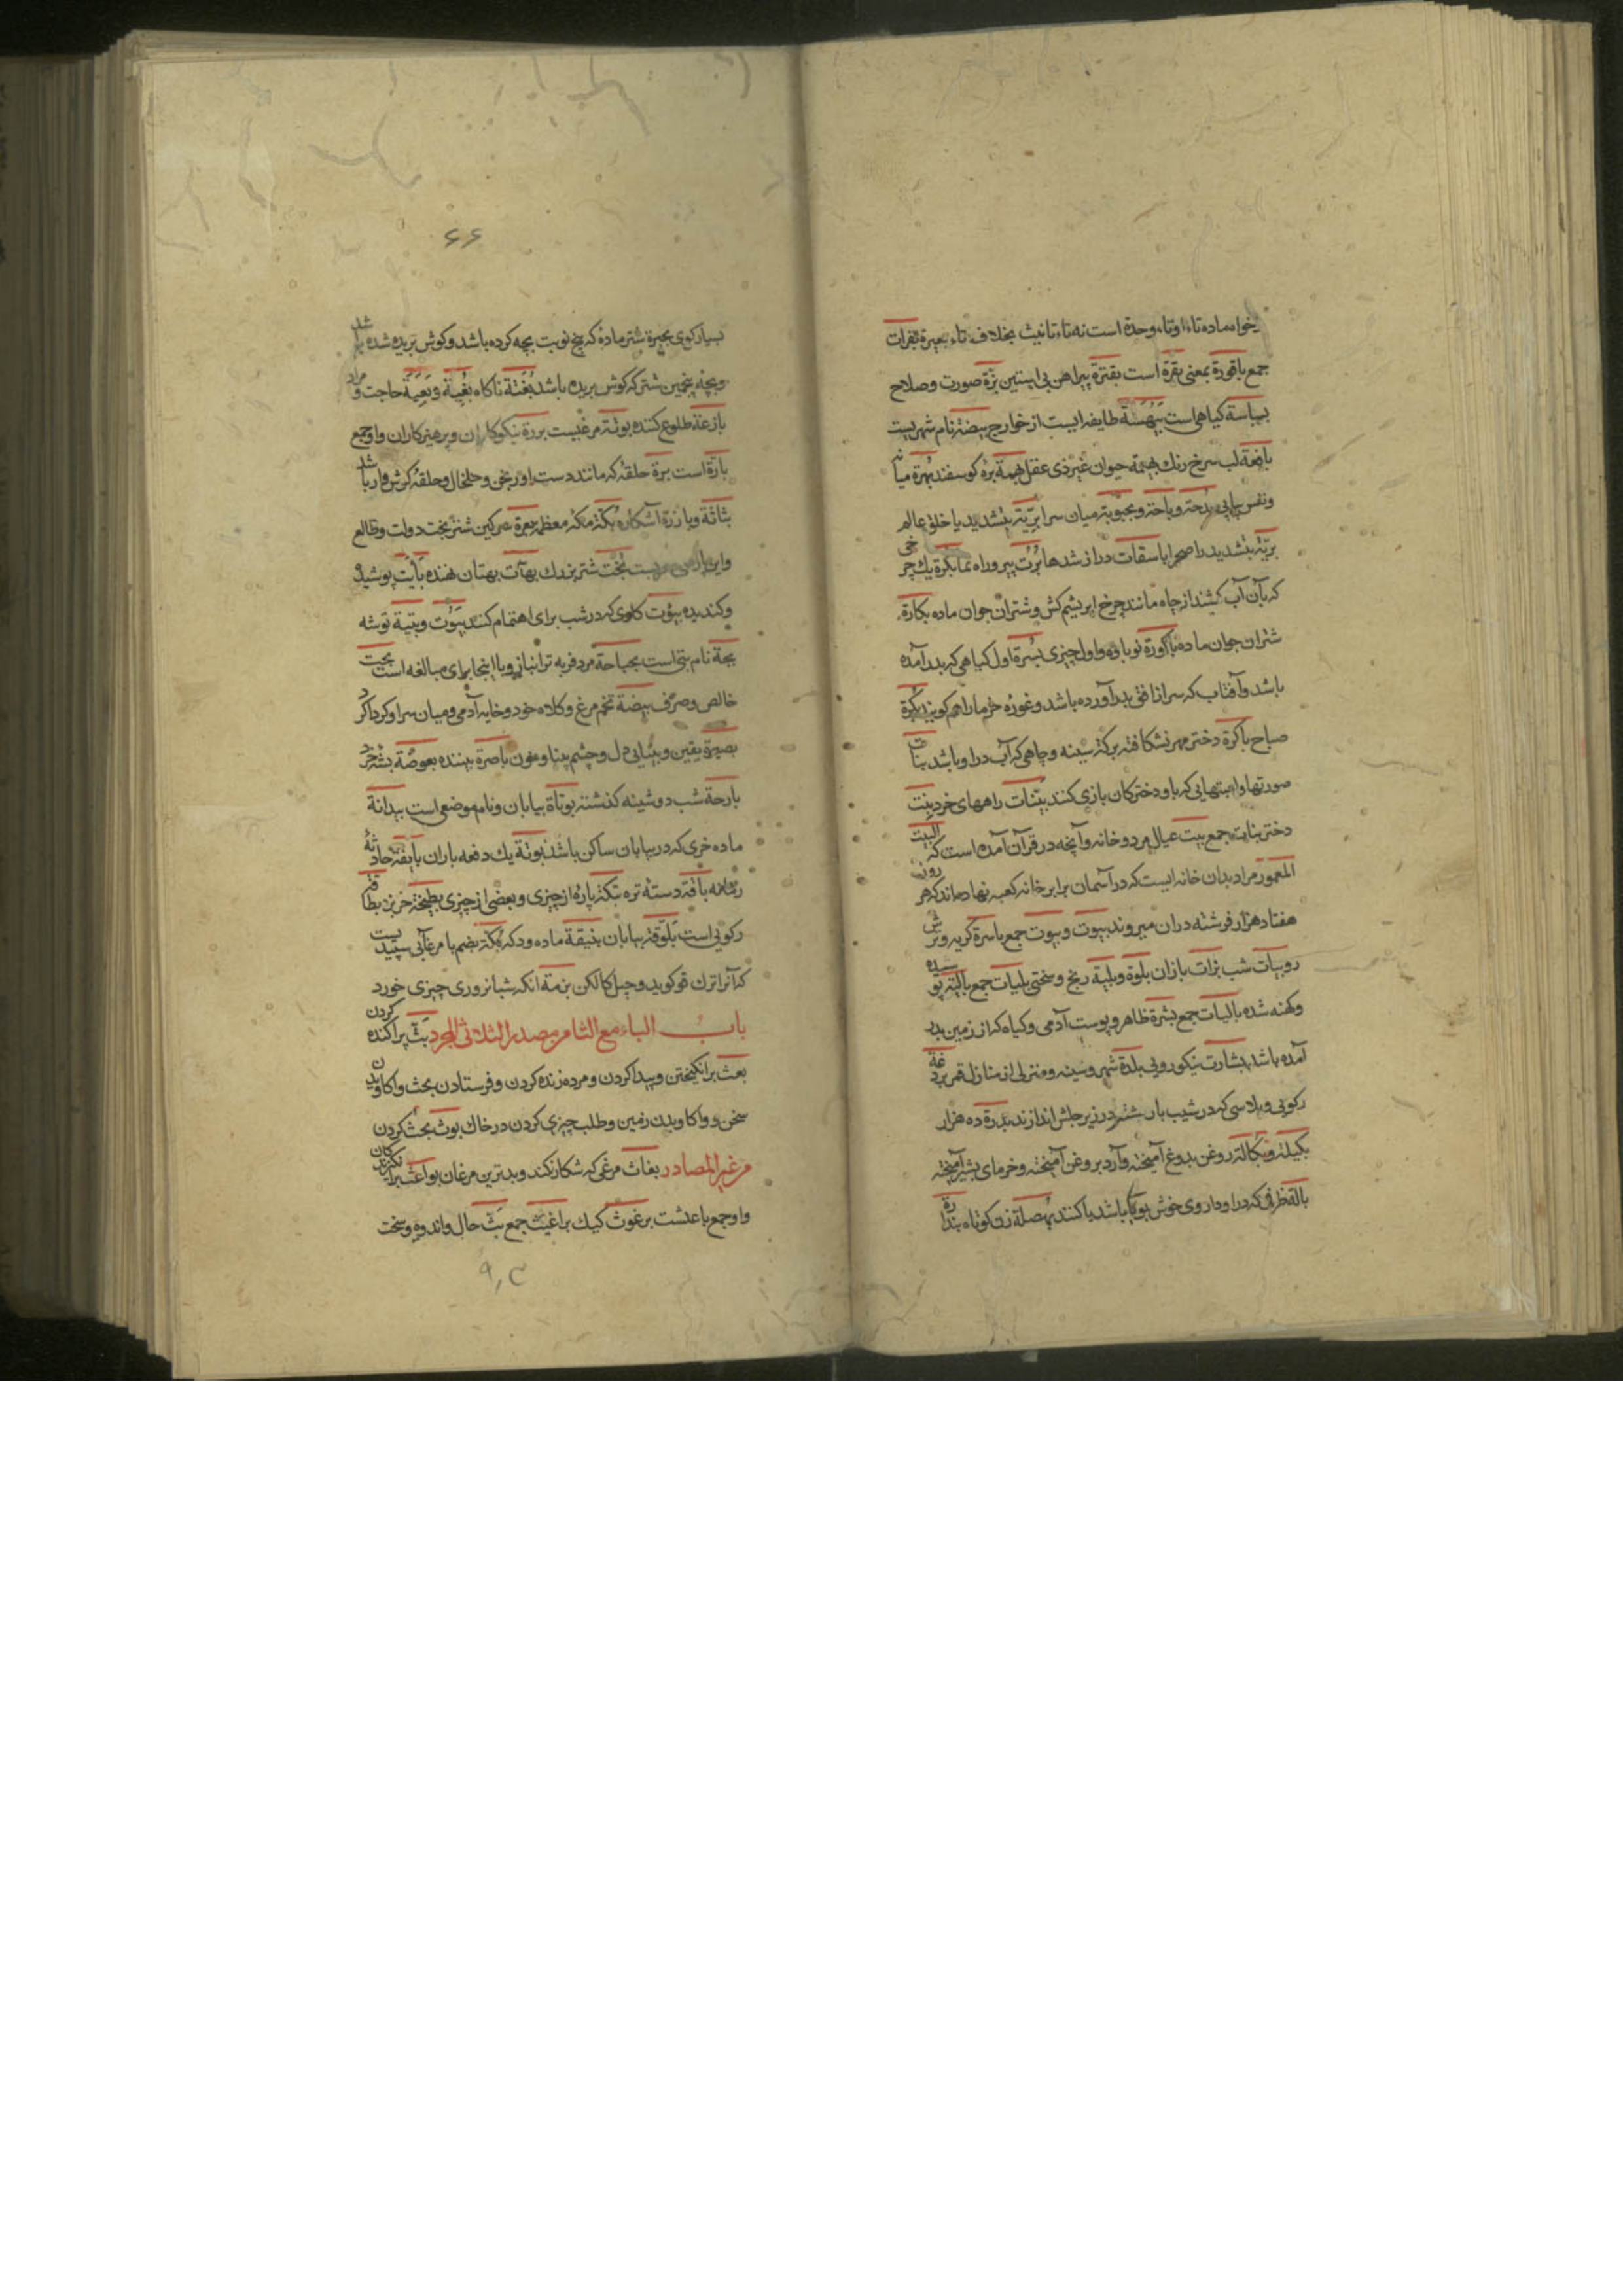 خواه ماده تاء او تاء وحدة است نه تاء تانیث بخلاف تاء بعیرة بقرات
جمع باقورة بمعنی بقرة است بقترة پیراهن بی استین بزة صورت وصلاح
بسباسة کیاهی است بیهسة طایفه ایست از خوارج بیضة نام شهریست
باضعة لب سرخ رنك بهیمة حیوان غیر ذی عقل بهمة بره کوسفند بهرة میانه
ونفس بحة وباحة وبحبوبة میان سرا بریة بتشدید یا خلق عالم
بریة بتشدید را صحرا باسقات دراز شدها برت پیر وراه نما بکرة یك چرخی
که بآن آب کشند از چاه مانند چرخ ابریشم کش وشتران جوان ماده بکارة
شتران جوان ماده باکورة نوباوه واول چیزی بسرة اول کیاهی که بدر آمده
باشد وآفتاب که سر از افق بدر آورده باشد وغوره خرما را هم کویند بکرة
صباح باکرة دختر مهر نشکافته برکة سینه وچاهی که آب در او باشد بنات
صورتها ولعبتهایی که با و دخترکان بازی کنند بنیات راههای خرد بنت
دختر بنات جمع بیت عیال مرد وخانه وآنچه در قرآن آمده است که البیت
المعمور مراد بدان خانه ایست که در آسمان برابر خانه کعبه نهاده‌اند که هر روز
هفتاد هزار فرشته دران میروند بیوت وبیوت جمع باسرة کریه وترش
رو بیات شب بزات بازان بلوة وبلیة رنج وسختی بلیات جمع بالیة پوسیده
وکهنه شده بالیات جمع بشرة ظاهر وپوست آدمی وکیاه که از زمین بدر
آمده باشد بشارت نیکورویی بلدة شهر وسینه ومنزلی از منازل قمر بردغة
رکویی وپلاسی که در شیب بار شتر در زیر جلش اندازند بدرة ده هزار
بکیلة وبکالة روغن بدوغ آمیخته وآرد بروغن آمیخته وخرمای بشیر آمیخته
بالة ظرفی که در او داروی خوش بوی باشد یا کنند بهصلة زن کوتاه بندارة
٦٦
بسیار کوی بحیرة شتر ماده که پنج نوبت بچه کرده باشد وکوش بریده شده باشد
وبچه پنجمین شتر که کوش بریده باشد بغتة ناکاه بغیة وبغیة حاجت ومراد
بازغة طلوع کننده بوثة مرغیست بررة نیکوکاران وپرهیزکاران واو جمع
بارة است برة حلقه که مانند دست اورنجن وخلخال وحلقه کوش واره باشد
بثاثة وبارزة آشکاره بکة مکه معظمه بعرة سرکین شتر بخت دولت وطالع
واین پارسی است بخت شتر بزرك بهآت بهتان نهنده بایت پوشیده
وکندیده بیؤت کاری که در شب برای اهتمام کنند بیوت وبتیة توشه
بجة نام بتی است بجباجة مرد فربه ترانباز ویا اینجا برای مبالغه است بحت
خالص وصرف بیضة تخم مرغ وکلاه خود وخایه آدمی ومیان سرا وکرداکرد
بصیرة یقین وبینایی دل وچشم بینا وخون باصرة بیننده بعوضة پشه خرد
بارحة شب دوشینه کذشته بوتاة بیابان ونام موضعی است بیدانة
ماده خری که در بیابان ساکن باشد بوقة یك دفعه باران بایقة حادثه
زمانه باقة دسته تره بتکة پاره از چیزی وبعضی از چیزی بطیخة خربزه بطاقة
رکویی است بلوقة بیابان بنیقة ماده ودکر برکة بضم با مرغابی سپید است
که آنرا ترك قو کوید وچیل کالکن بزمة انکه شبانروزی چیزی خورد
باب الباء مع الثا من مصدر الثلاثی المجرد بث پراکنده کردن
بعث برانکیختن وپیدا کردن ومرده زنده کردن وفرستادن بحث واکاویدن
سخن وواکاویدن زمین وطلب چیزی کردن در خاك بوث بحث کردن
من غیر المصادر بغاث مرغی که شکار نکند وبدترین مرغان بواعث برانکیزندکان
واو جمع باعث است برغوث کیك براغیث جمع بث حال واندوه وسخت